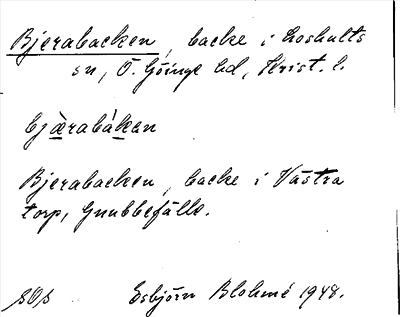 Bjerabacken, backe i Loshults
sn, Ö. Göinge hd, Krist. l.
bjàrabákan
Bjerabacken, backe i Västra
torp, Gnubbefälle.
sOs Esbjörn Blohmé 1948.